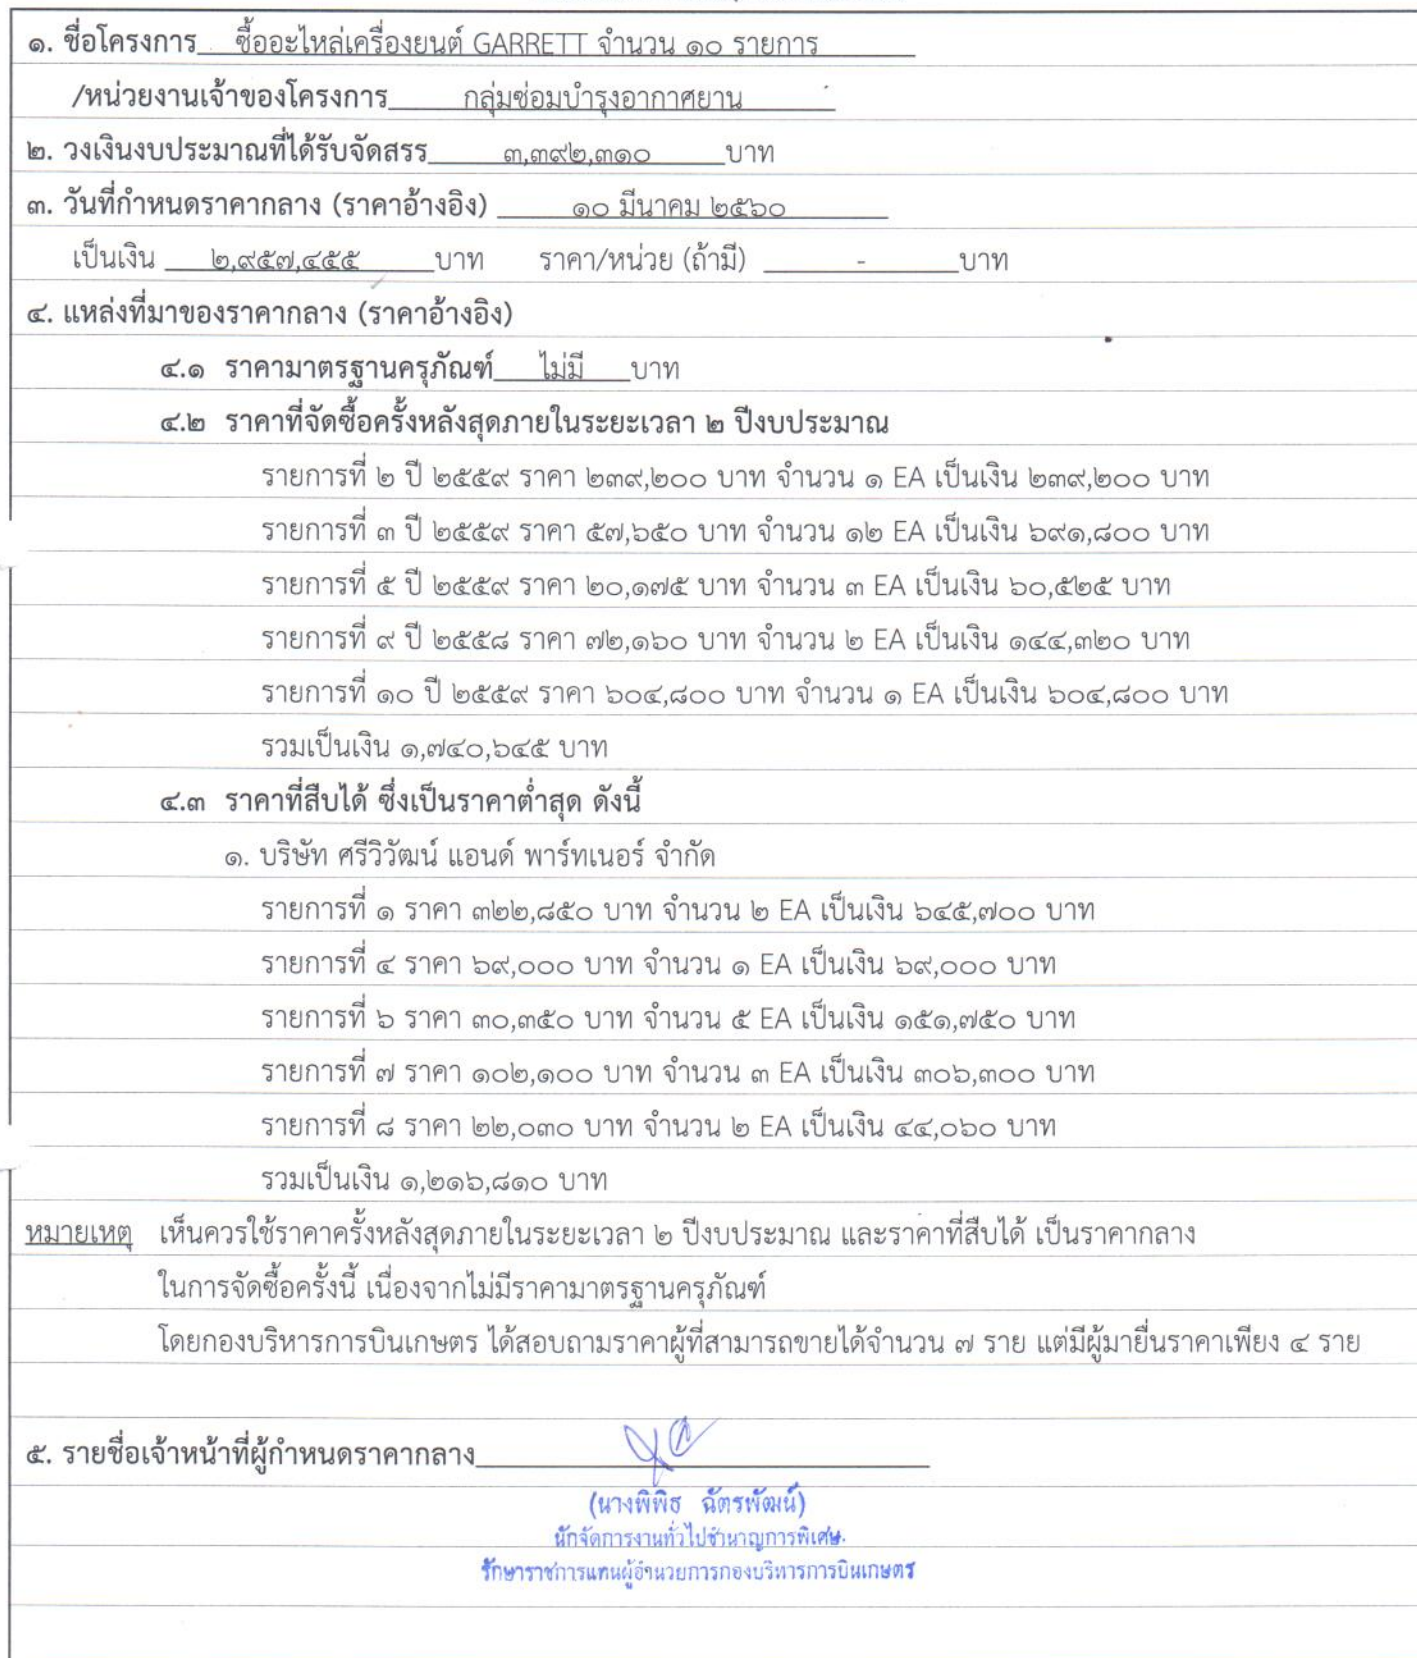 ๑. ชื่อโครงการ ซื้ออะไหล่เครื่องยนต์ GARRETT จำนวน ๑๐ รายการ
/หน่วยงานเจ้าของโครงการ กลุ่มซ่อมบำรุงอากาศยาน
๒. วงเงินงบประมาณที่ได้รับจัดสรร ๓,๓๙๒,๓๑๐ บาท
๓. วันที่กำหนดราคากลาง (ราคาอ้างอิง) ๑๐ มีนาคม ๒๕๖๐
เป็นเงิน ๒,๙๕๗,๔๕๕ บาท ราคา/หน่วย (ถ้ามี) - บาท
๔. แหล่งที่มาของราคากลาง (ราคาอ้างอิง)
๔.๑ ราคามาตรฐานครุภัณฑ์ ไม่มี บาท
๔.๒ ราคาที่จัดซื้อครั้งหลังสุดภายในระยะเวลา ๒ ปีงบประมาณ
รายการที่ ๒ ปี ๒๕๕๙ ราคา ๒๓๙,๒๐๐ บาท จำนวน ๑ EA เป็นเงิน ๒๓๙,๒๐๐ บาท
รายการที่ ๓ ปี ๒๕๕๙ ราคา ๕๗,๖๕๐ บาท จำนวน ๑๒ EA เป็นเงิน ๖๙๑,๘๐๐ บาท
รายการที่ ๕ ปี ๒๕๕๙ ราคา ๒๐,๑๗๕ บาท จำนวน ๓ EA เป็นเงิน ๖๐,๕๒๕ บาท
รายการที่ ๙ ปี ๒๕๕๘ ราคา ๗๒,๑๖๐ บาท จำนวน ๒ EA เป็นเงิน ๑๔๔,๓๒๐ บาท
รายการที่ ๑๐ ปี ๒๕๕๙ ราคา ๖๐๔,๘๐๐ บาท จำนวน ๑ EA เป็นเงิน ๖๐๔,๘๐๐ บาท
รวมเป็นเงิน ๑,๗๔๐,๖๔๕ บาท
๔.๓ ราคาที่สืบได้ ซึ่งเป็นราคาต่ำสุด ดังนี้
๑. บริษัท ศรีวิวัฒน์ แอนด์ พาร์ทเนอร์ จำกัด
รายการที่ ๑ ราคา ๓๒๒,๘๕๐ บาท จำนวน ๒ EA เป็นเงิน ๖๔๕,๗๐๐ บาท
รายการที่ ๔ ราคา ๖๙,๐๐๐ บาท จำนวน ๑ EA เป็นเงิน ๖๙,๐๐๐ บาท
รายการที่ ๖ ราคา ๓๐,๓๕๐ บาท จำนวน ๕ EA เป็นเงิน ๑๕๑,๗๕๐ บาท
รายการที่ ๗ ราคา ๑๐๒,๑๐๐ บาท จำนวน ๓ EA เป็นเงิน ๓๐๖,๓๐๐ บาท
รายการที่ ๘ ราคา ๒๒,๐๓๐ บาท จำนวน ๒ EA เป็นเงิน ๔๔,๐๖๐ บาท
รวมเป็นเงิน ๑,๒๑๖,๘๑๐ บาท
หมายเหตุ เห็นควรใช้ราคาครั้งหลังสุดภายในระยะเวลา ๒ ปีงบประมาณ และราคาที่สืบได้ เป็นราคากลาง
ในการจัดซื้อครั้งนี้ เนื่องจากไม่มีราคามาตรฐานครุภัณฑ์
โดยกองบริหารการบินเกษตร ได้สอบถามราคาผู้ที่สามารถขายได้จำนวน ๗ ราย แต่มีผู้มายื่นราคาเพียง ๔ ราย
๕. รายชื่อเจ้าหน้าที่ผู้กำหนดราคากลาง
(นางพิพิธ ฉัตรพัฒน์)
นักจัดการงานทั่วไปชำนาญการพิเศษ
รักษาราชการแทนผู้อำนวยการกองบริหารการบินเกษตร